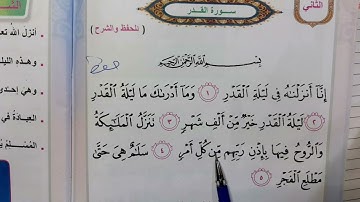 الثاني
سورة القدر
(للحفظ والشرح)
بِسْمِ اللَّهِ الرَّحْمَٰنِ الرَّحِيمِ
إِنَّا أَنزَلْنَٰهُ فِي لَيْلَةِ الْقَدْرِ ١ وَمَا أَدْرَىٰكَ مَا لَيْلَةُ الْقَدْرِ
٢ لَيْلَةُ الْقَدْرِ خَيْرٌ مِّنْ أَلْفِ شَهْرٍ ٣ تَنَزَّلُ الْمَلَٰٓئِكَةُ
وَالرُّوحُ فِيهَا بِإِذْنِ رَبِّهِم مِّن كُلِّ أَمْرٍ ٤ سَلَٰمٌ هِيَ حَتَّىٰ
مَطْلَعِ الْفَجْرِ ٥
أنزل الله
وهذه الليلة
وهي إحدى
العبادة في
المسلم